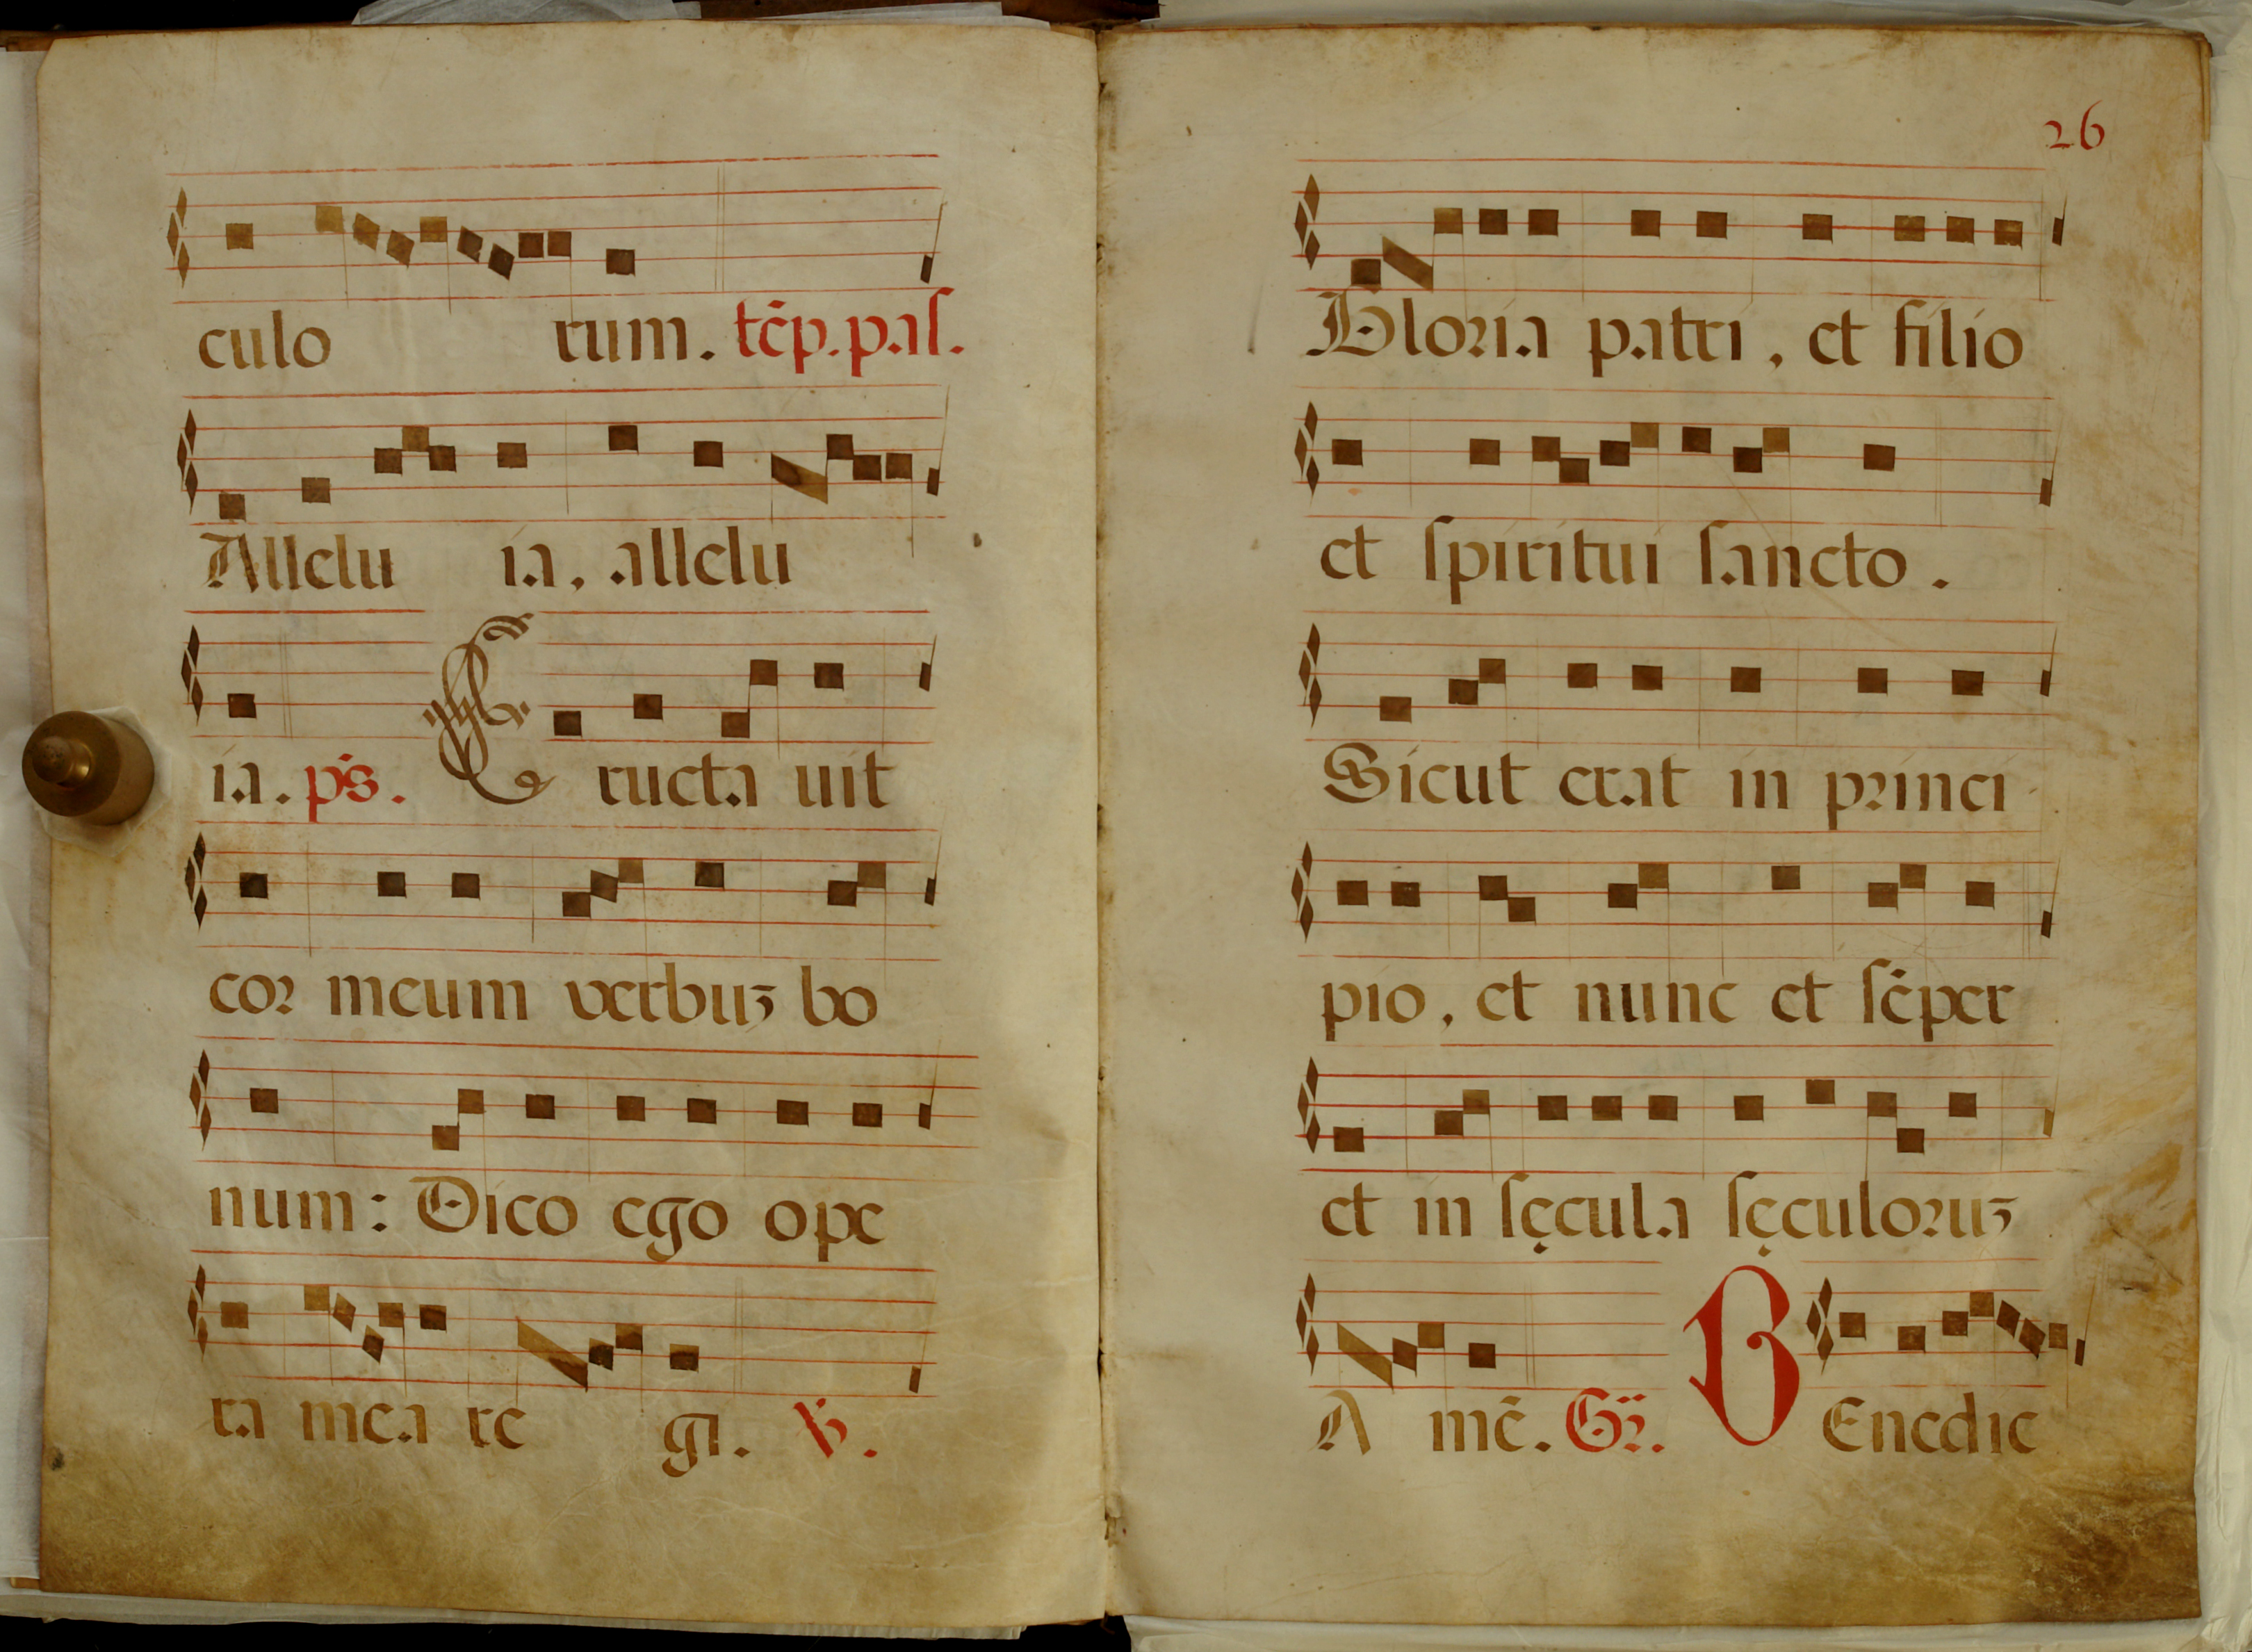 culo rum. tẽp. pas.
Allelu ia, allelu
ia. ps. E ructa uit
cor meum verbuꝫ bo
num: Dico ego ope
ra mea re gi. ℣.
26
Gloria patri, et filio
et spiritui sancto.
Sicut erat in princi
pio, et nunc et sẽper
et in sęcula sęculoruꝫ
A mẽ. Gr. B Enedic